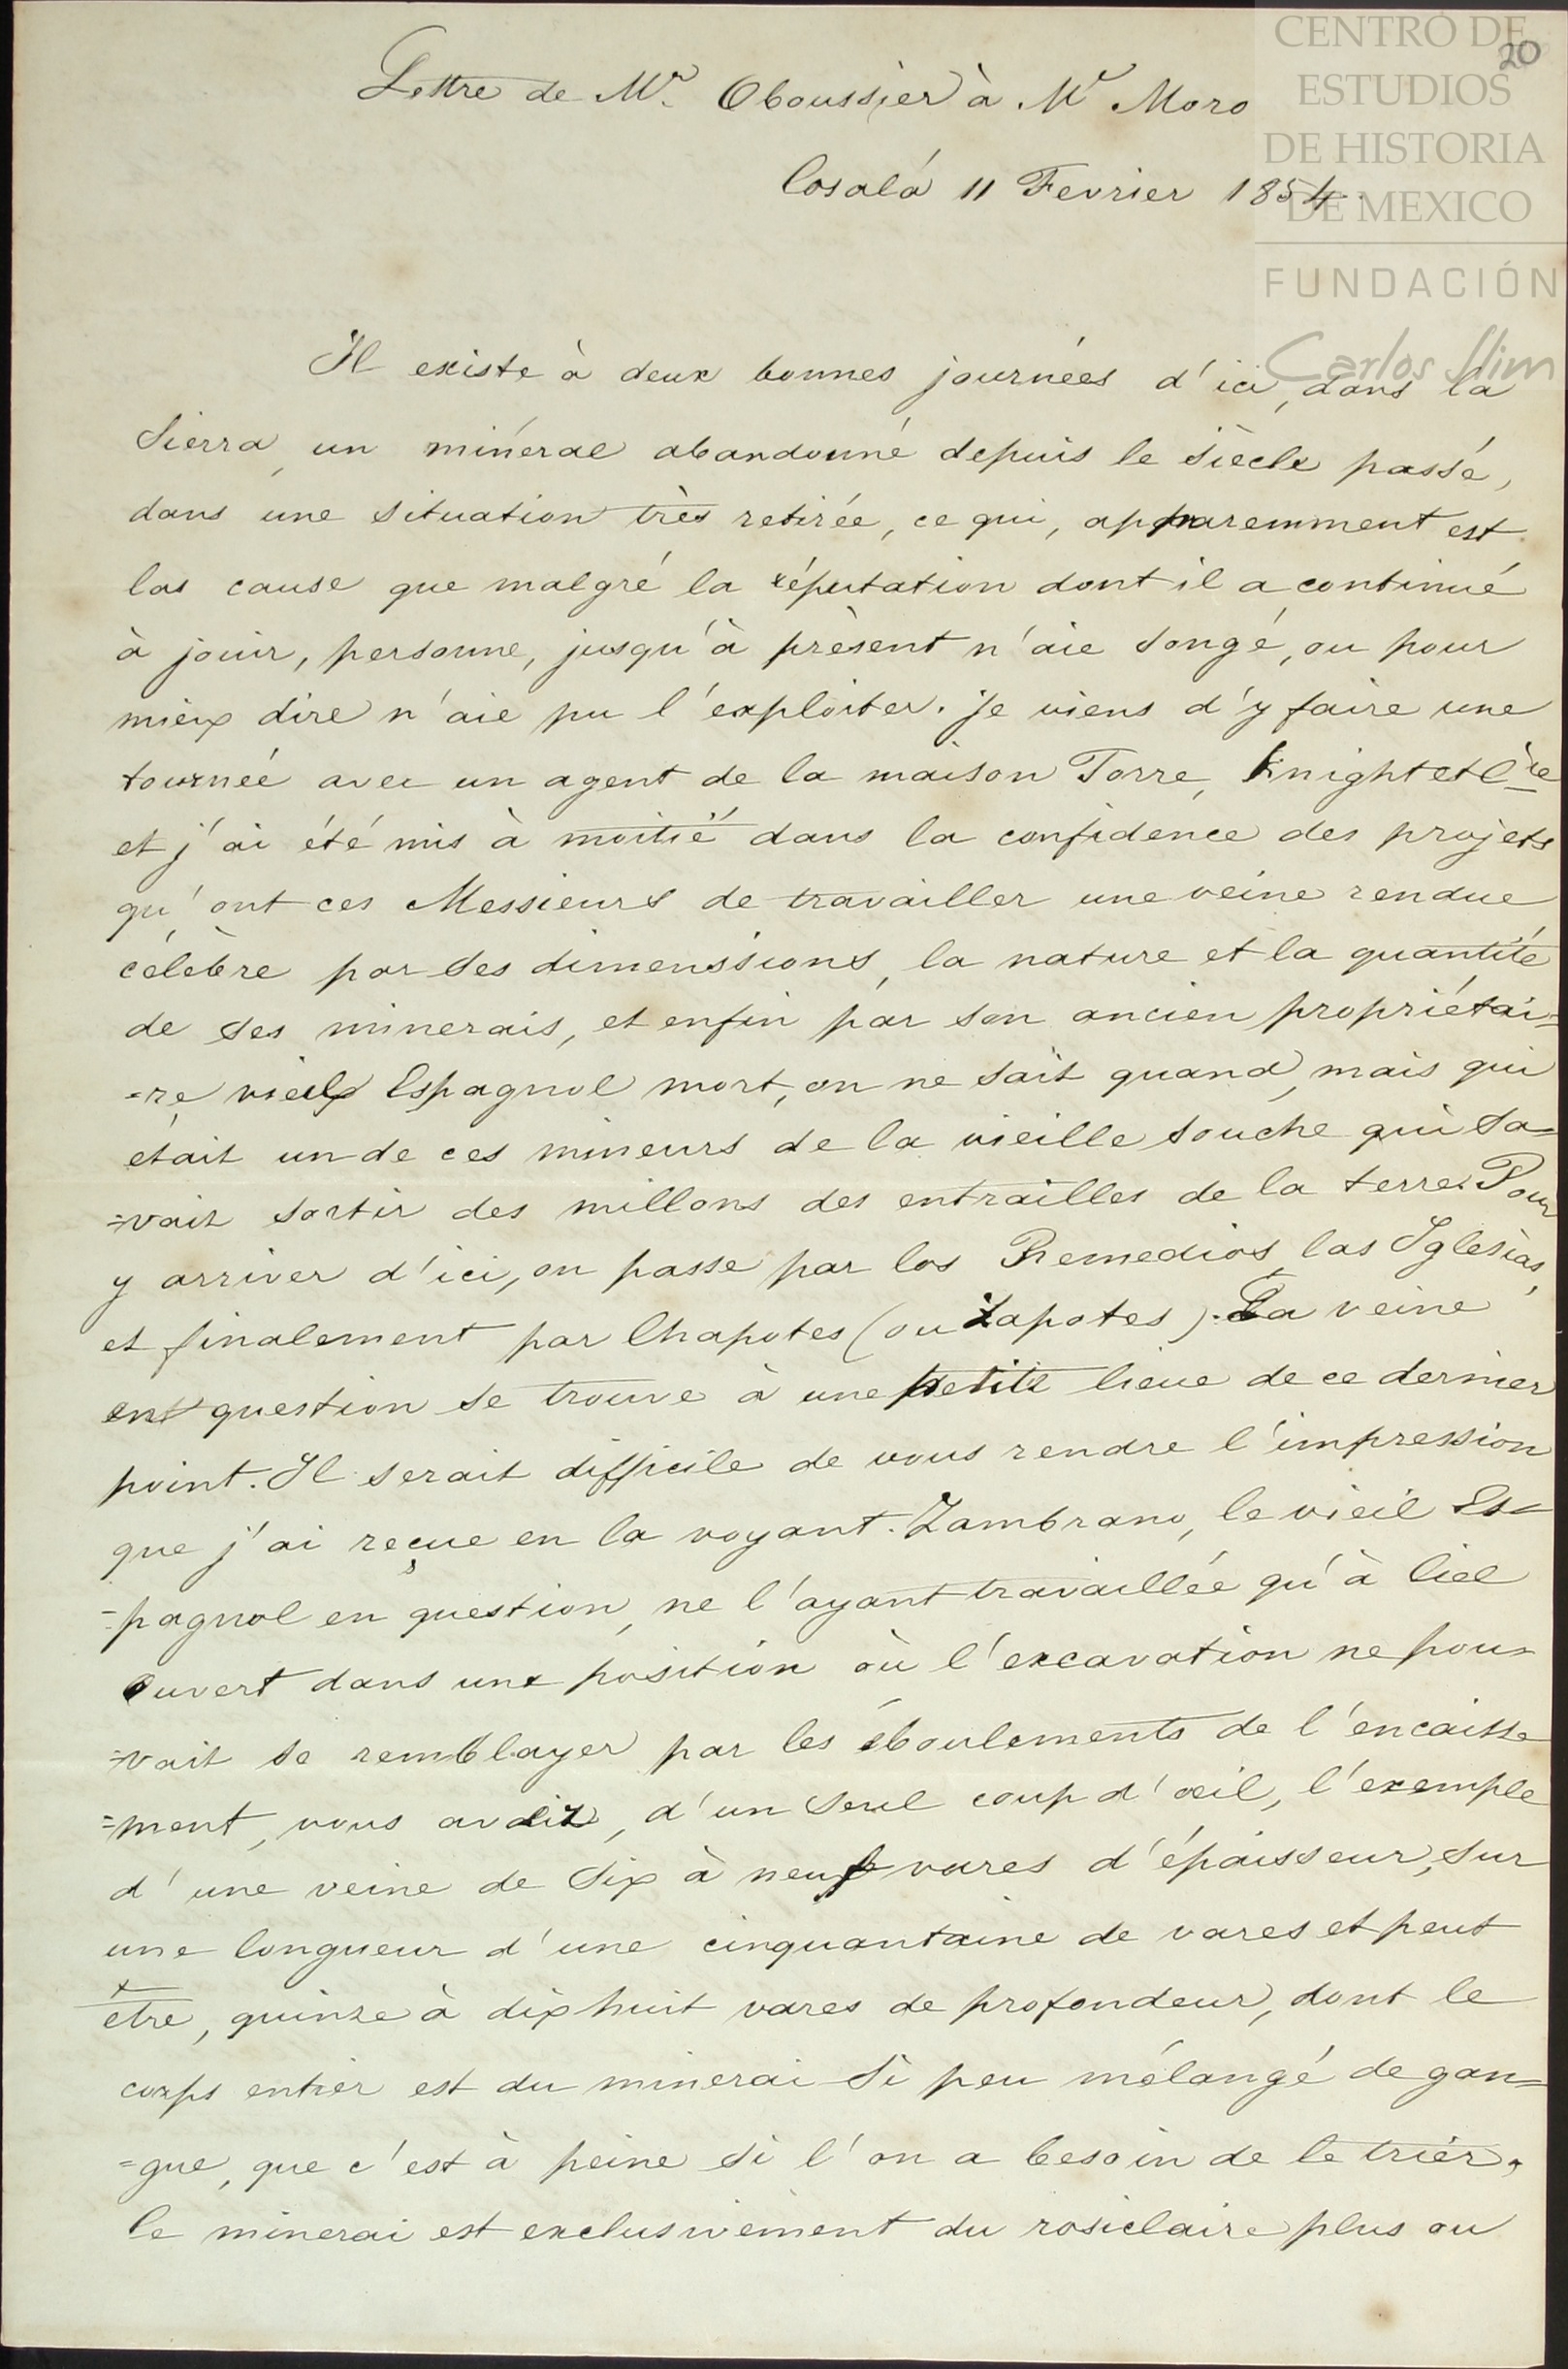 CENTRO DE
ESTUDIOS
DE HISTORIA
DE MEXICO
FUNDACIÓN
Carlos Slim
20
Lettre de Mr. Oboussier à Mr Moro
Cosalá 11 Fevrier 1854.
Il existe à deux bonnes journées d'ici, dans la
Sierra, un minéral abandonné depuis le siècle passé,
dans une situation très retirée, ce qui, apparemment est
las cause que malgré la réputation dont il a continué
à jouir, personne, jusqu'à prèsent n'aie songé, ou pour
mieux dire n'aie pu l'exploiter. je viens d'y faire une
tournée avec un agent de la maison Torre, Knight et Cie
et j'ai été mis à moitié dans la confidence des projets
qu'ont ces Messieurs de travailler une veine rendue
célèbre par ses dimenssions, la nature et la quantité
de ses minerais, et enfin par son ancien propriétai=
=re vieil Espagnol mort, on ne sait quand, mais qui
était un de ces mineurs de la vieille souche qui sa=
=vait sortir des millons des entrailles de la terre. Pour
y arriver d'ici, on passe par los Remedios, las Iglesias,
et finalement par Chapotes (ou Zapotes). La veine
en question se trouve à une petite lieue de ce dernier
point. Il serait difficile de vous rendre l'impression
que j'ai reçue en la voyant. Zambrano, le vieil Es=
=pagnol en question, ne l'ayant travaillée qu'à Ciel
Ouvert dans une position où l'excavation ne pou=
=vait se remblayer par les éboulements de l'encaisse
=ment, vous avdiz, d'un seul coup d'œil, l'exemple
d'une veine de six à neuf vares d'épaisseur, sur
une longueur d'une cinquantaine de vares et peut
être, quinze à dix huit vares de profondeur, dont le
corps entier est du minerai si peu mélangé de gan=
=gue, que c'est à peine si l'on a besoin de le trier,
le minerai est exclusivement du rosiclaire plus ou